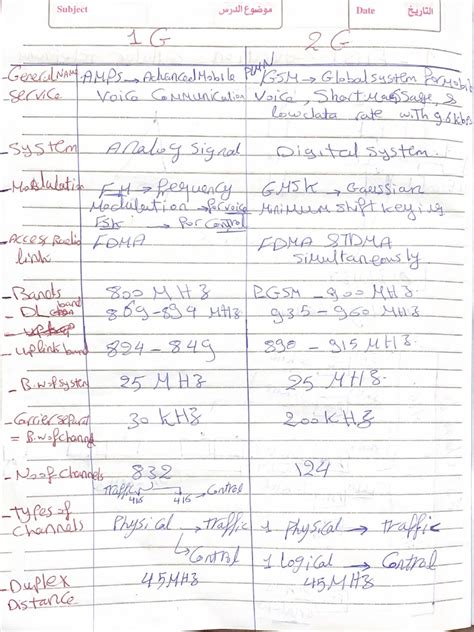 Subject موضوع الدرس Date التاريخ
1G 2G
- General NAME AMPS → Advanced Mobile PLMN GSM → Global system For Mobile
- Service Voice Communication Voice, Short Massage, &
low data rate with 9.6 kbps
- System Analog Signal Digital System.
- Modulation FM → frequency GMSK → Gaussian
Modulation → For voice Minimum Shift keying
FSK → For Control
- Access Radio FDMA FDMA & TDMA
link simultaneously
- Bands 800 MHz P.GSM - 900 MHz
- DL band 869-894 MHz 935-960 MHz
- uplink band 824-849 890-915 MHz
- B.w of system 25 MHz 25 MHz
- Carrier separat 30 KHz 200 KHz
= B.w of channel
- No of channels 832 124
traffic 416 416 → Control
- Types of Physical → traffic 1 Physical → traffic
channels
→ Control 1 Logical → Control
- Duplex 45 MHz 45 MHz
Distance